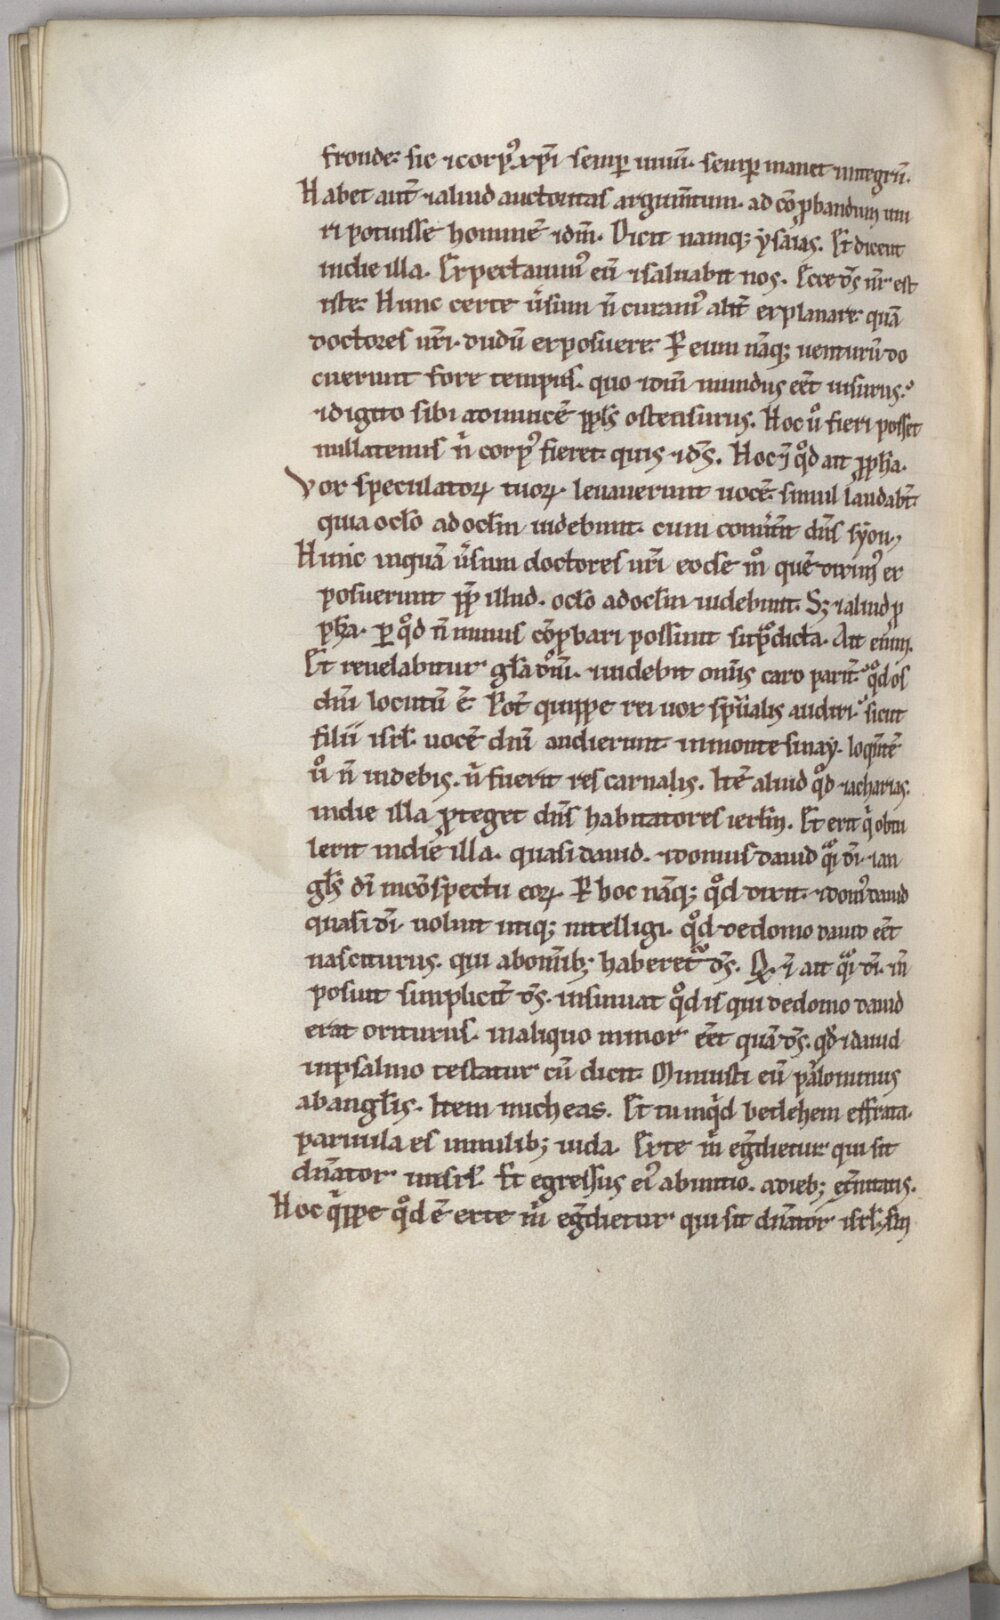 fronde. sic ⁊ corpꝰ xp̄i semꝑ unū. semꝑ manet integrū.
Habet aut̄ ⁊ aliud auctoritas argum̄tum. ad cōꝓbandum uni
ri potuisse hominē ⁊ dm̄. Dicit namq; ysaias. Et dicent
in die illa. Expectauimꝰ eū ⁊ saluabit nos. Ecce ds̄ nr̄ est
iste. Hunc certe ũsum n̄ curamꝰ alit̄ explanare. quā
doctores ur̄i dudū exposuere. P eum nāq; uenturū do
cuerunt fore tempus. quo dm̄ mundus eēt uisurus.
⁊ digito sibi adinuicē ꝓph̄s ostensurus. Hoc u̇ fieri posset
nullatenus n̄ corpꝰ fieret quis ⁊ ds̄. Hoc qͦd ait ꝓph̄a.
Vox speculatoꝝ tuoꝝ leuauerunt uocē. simul laudabt̄.
quia oclo ad oclm uidebunt. cum conu̇tit dn̄s syon.
Hunc inquā ũsum doctores ur̄i eodē mͦ quē diximꝰ ex
posuerunt ꝓp̄ illud. oclo ad oclm uidebunt. Sꝫ ⁊ aliud ꝓ
ph̄a. ꝑ qͦd n̄ minus cōꝓbari possunt sup̄dicta. Ait enim.
Et reuelabitur gl̄a dn̄i. ⁊ uidebit omīs caro parit̄ qͦd os
dn̄i locutū ē. Pot̄ quippe rei uox spūalis audiri. sicut
filii isrl̄ uocē dn̄i audierunt in monte sinay. loquentē
u̇ n̄ uidebis. n̄ fuerit res carnalis. Itē aliud qͦd zacharias.
in die illa ꝓteget dn̄s habitatores ierlm̄. Et erit qͥ obtu
lerit in die illa. quasi dauid. ⁊ domus dauid qͣi dī. ⁊ an
gls̄ dī in cōspectu eoꝝ. P hoc nāq; qͦd dixit. ⁊ domꝰ dauid
quasi dī. uoluit utiq; intelligi. qͦd de domo dauid eēt
nasciturus. qui ab omīb; haberet̄ ds̄. ait qͣi dī. n̄
posuit simplicit̄ ds̄. insinuat qͦd is qui de domo dauid
erat oriturus. in aliquo minor eēt quā ds̄. qd̄ ⁊ dauid
in psalmo testatur cū dicit. Minuisti eū paulominus
ab angl̄is. Item micheas. Et tu inqͥd betlehem effrata.
paruula es in milib; iuda. Ex te m̄ egr̄dietur qui sit
dn̄ator in isrl̄. Et egressus eiꝰ ab initio. a dieb; et̄nitatis.
Hoc qͥppe qͦd ē ex te m̄ egr̄dietur qui sit dn̄ator isrl̄.